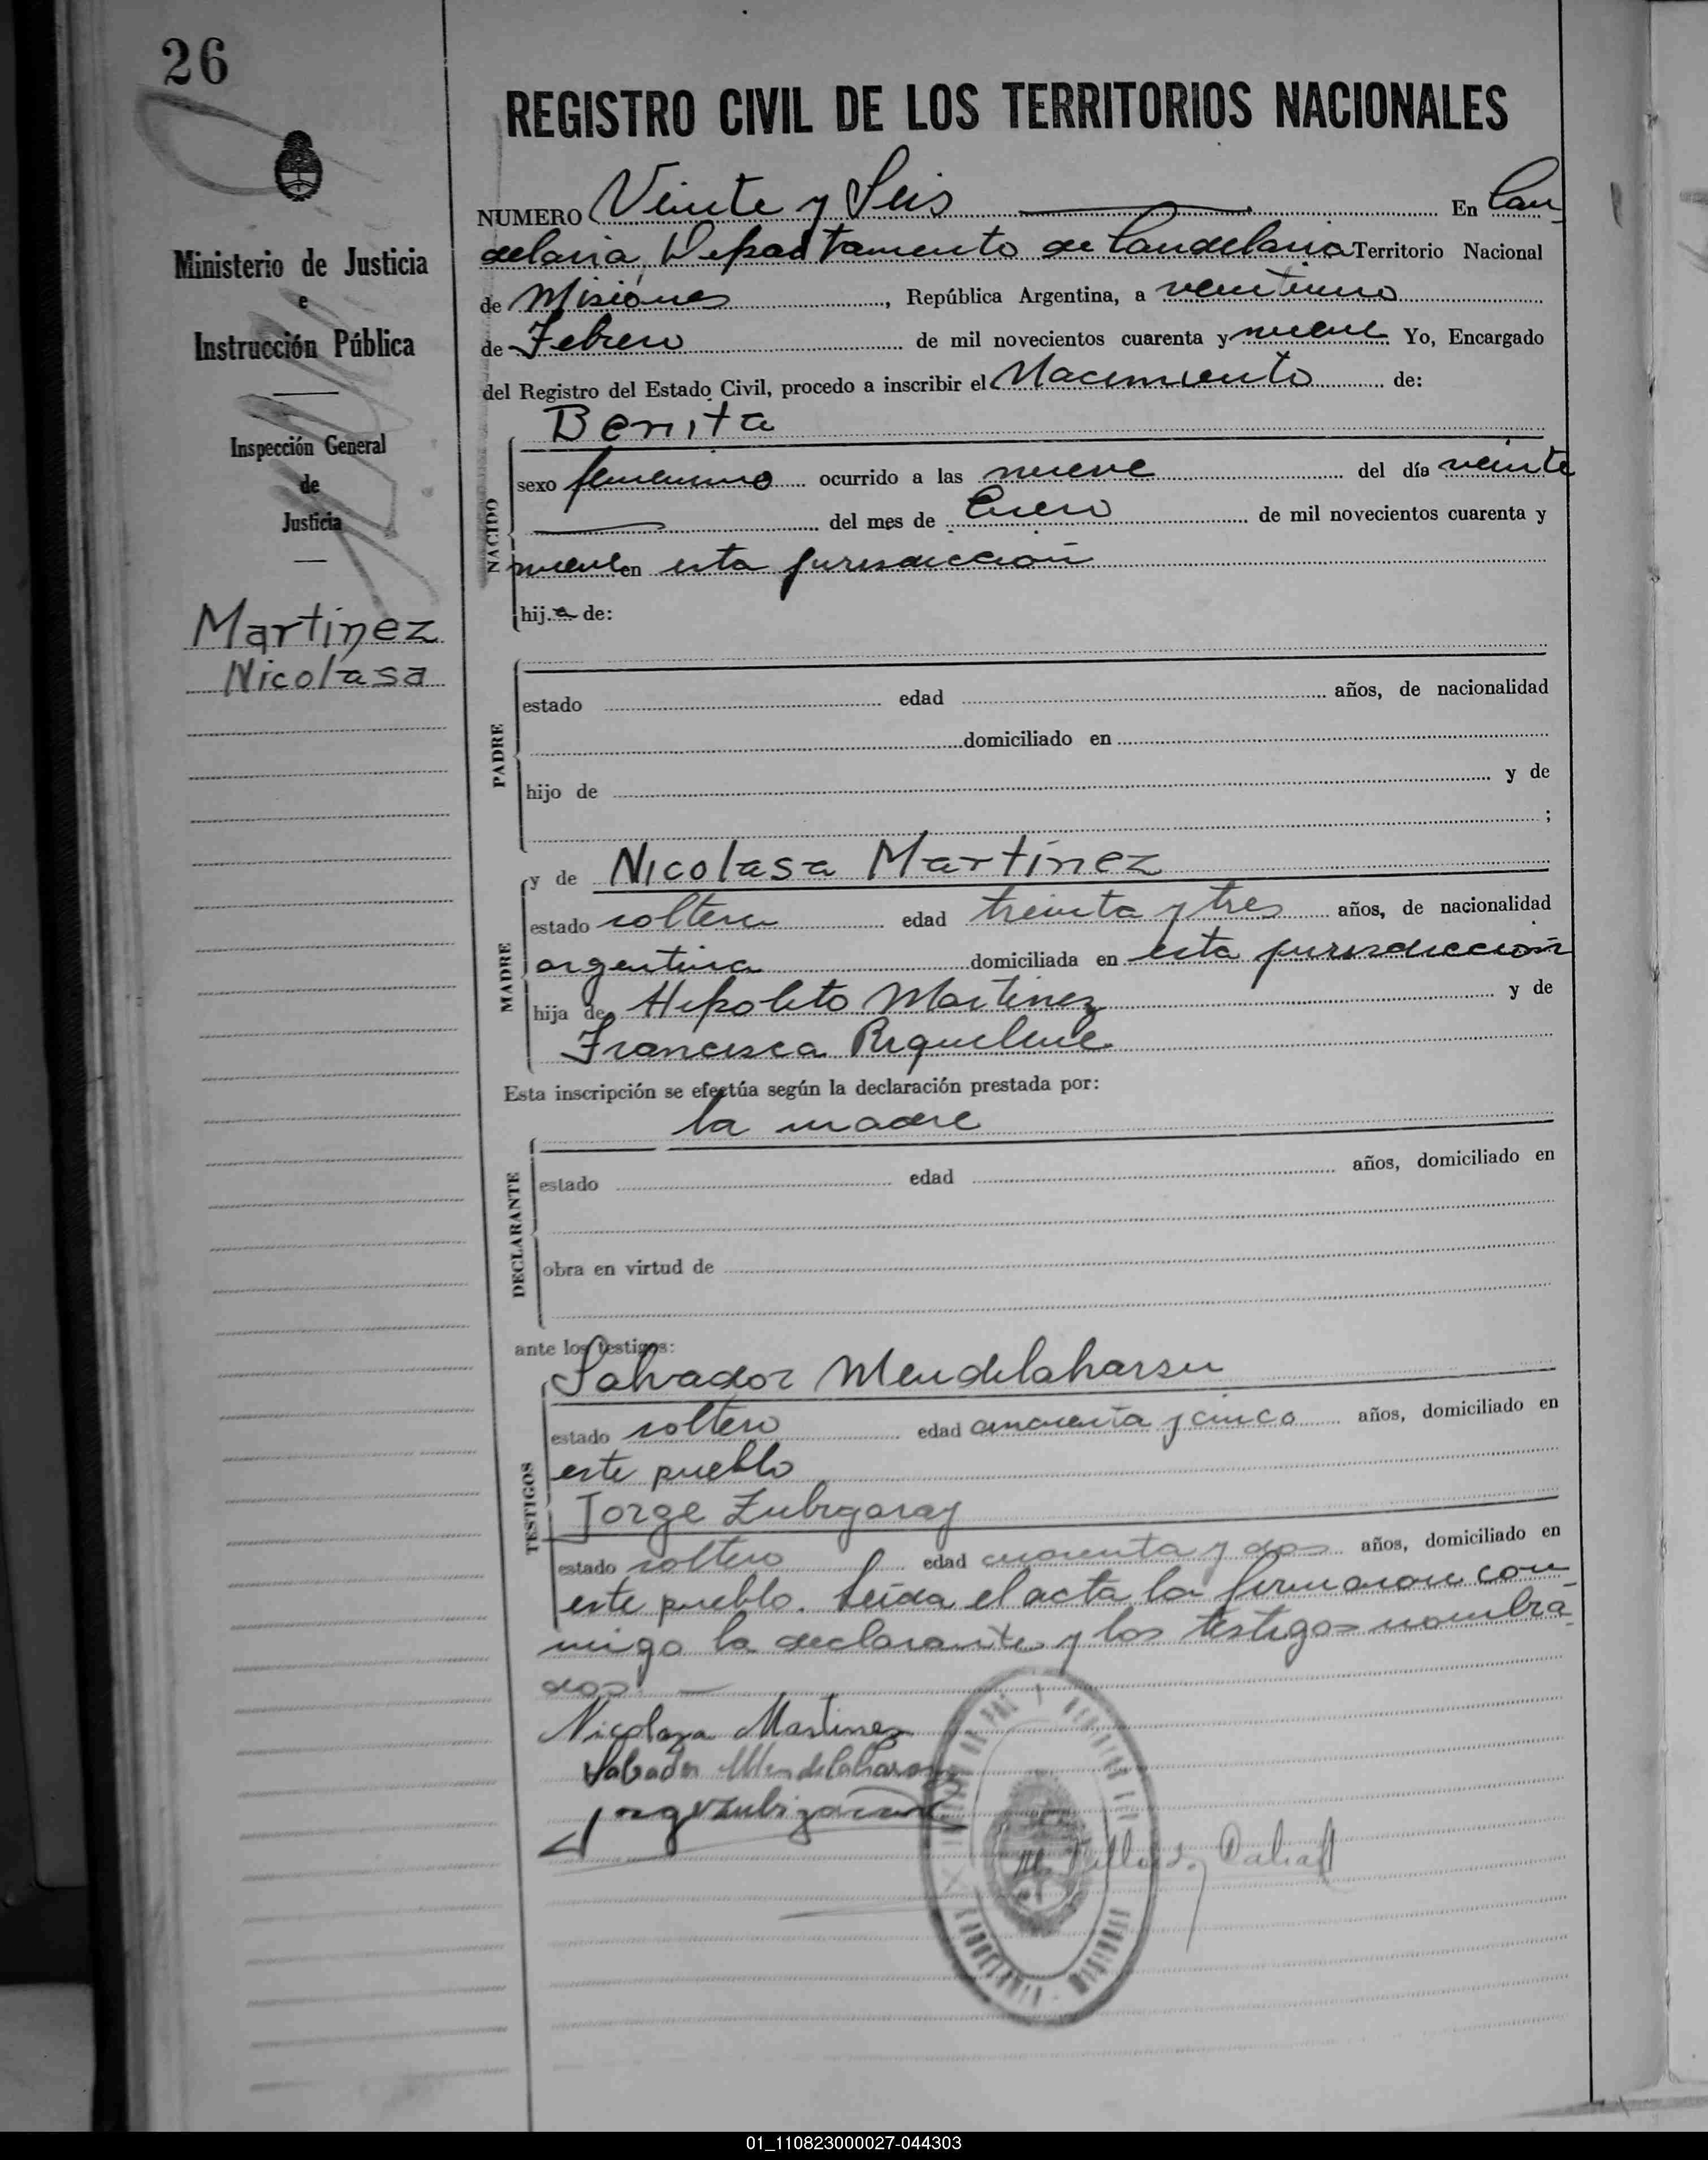 26
REGISTRO CIVIL DE LOS TERRITORIOS NACIONALES
Ministerio de Justicia
e
Instrucción Pública
Inspección General
de
Justicia
Martinez
Nicolasa
NUMERO Veinte y Seis En Can-
delaria, Departamento de Candelaria Territorio Nacional
de Misiones, República Argentina, a veintiuno
de Febrero de mil novecientos cuarenta y nueve Yo, Encargado
del Registro del Estado Civil, procedo a inscribir el Nacimiento de:
Benita
NACIDO
sexo femenino ocurrido a las nueve del día veinte
del mes de Enero de mil novecientos cuarenta y
nueve en esta jurisdicción
hij.a de:
PADRE
estado edad años, de nacionalidad
domiciliado en
hijo de y de
;
y de Nicolasa Martinez
MADRE
estado soltera edad treinta y tres años, de nacionalidad
argentina domiciliada en esta jurisdicción
hija de Hipolito Martinez y de
Francisca Riquelme
Esta inscripción se efectúa según la declaración prestada por:
la madre
DECLARANTE
estado edad años, domiciliado en
obra en virtud de
ante los testigos:
Salvador Mendelaharsu
TESTIGOS
estado soltero edad cincuenta y cinco años, domiciliado en
este pueblo
Jorge Zubigaray
estado soltero edad cuarenta y dos años, domiciliado en
este pueblo. Leída el acta la firmaron con-
migo la declarante y los testigos nombra-
dos.
Nicolaza Martinez
Salvador Mendelaharsu
Jorge Zubizar
CANDELARIA - MISIONES
01_110823000027-044303